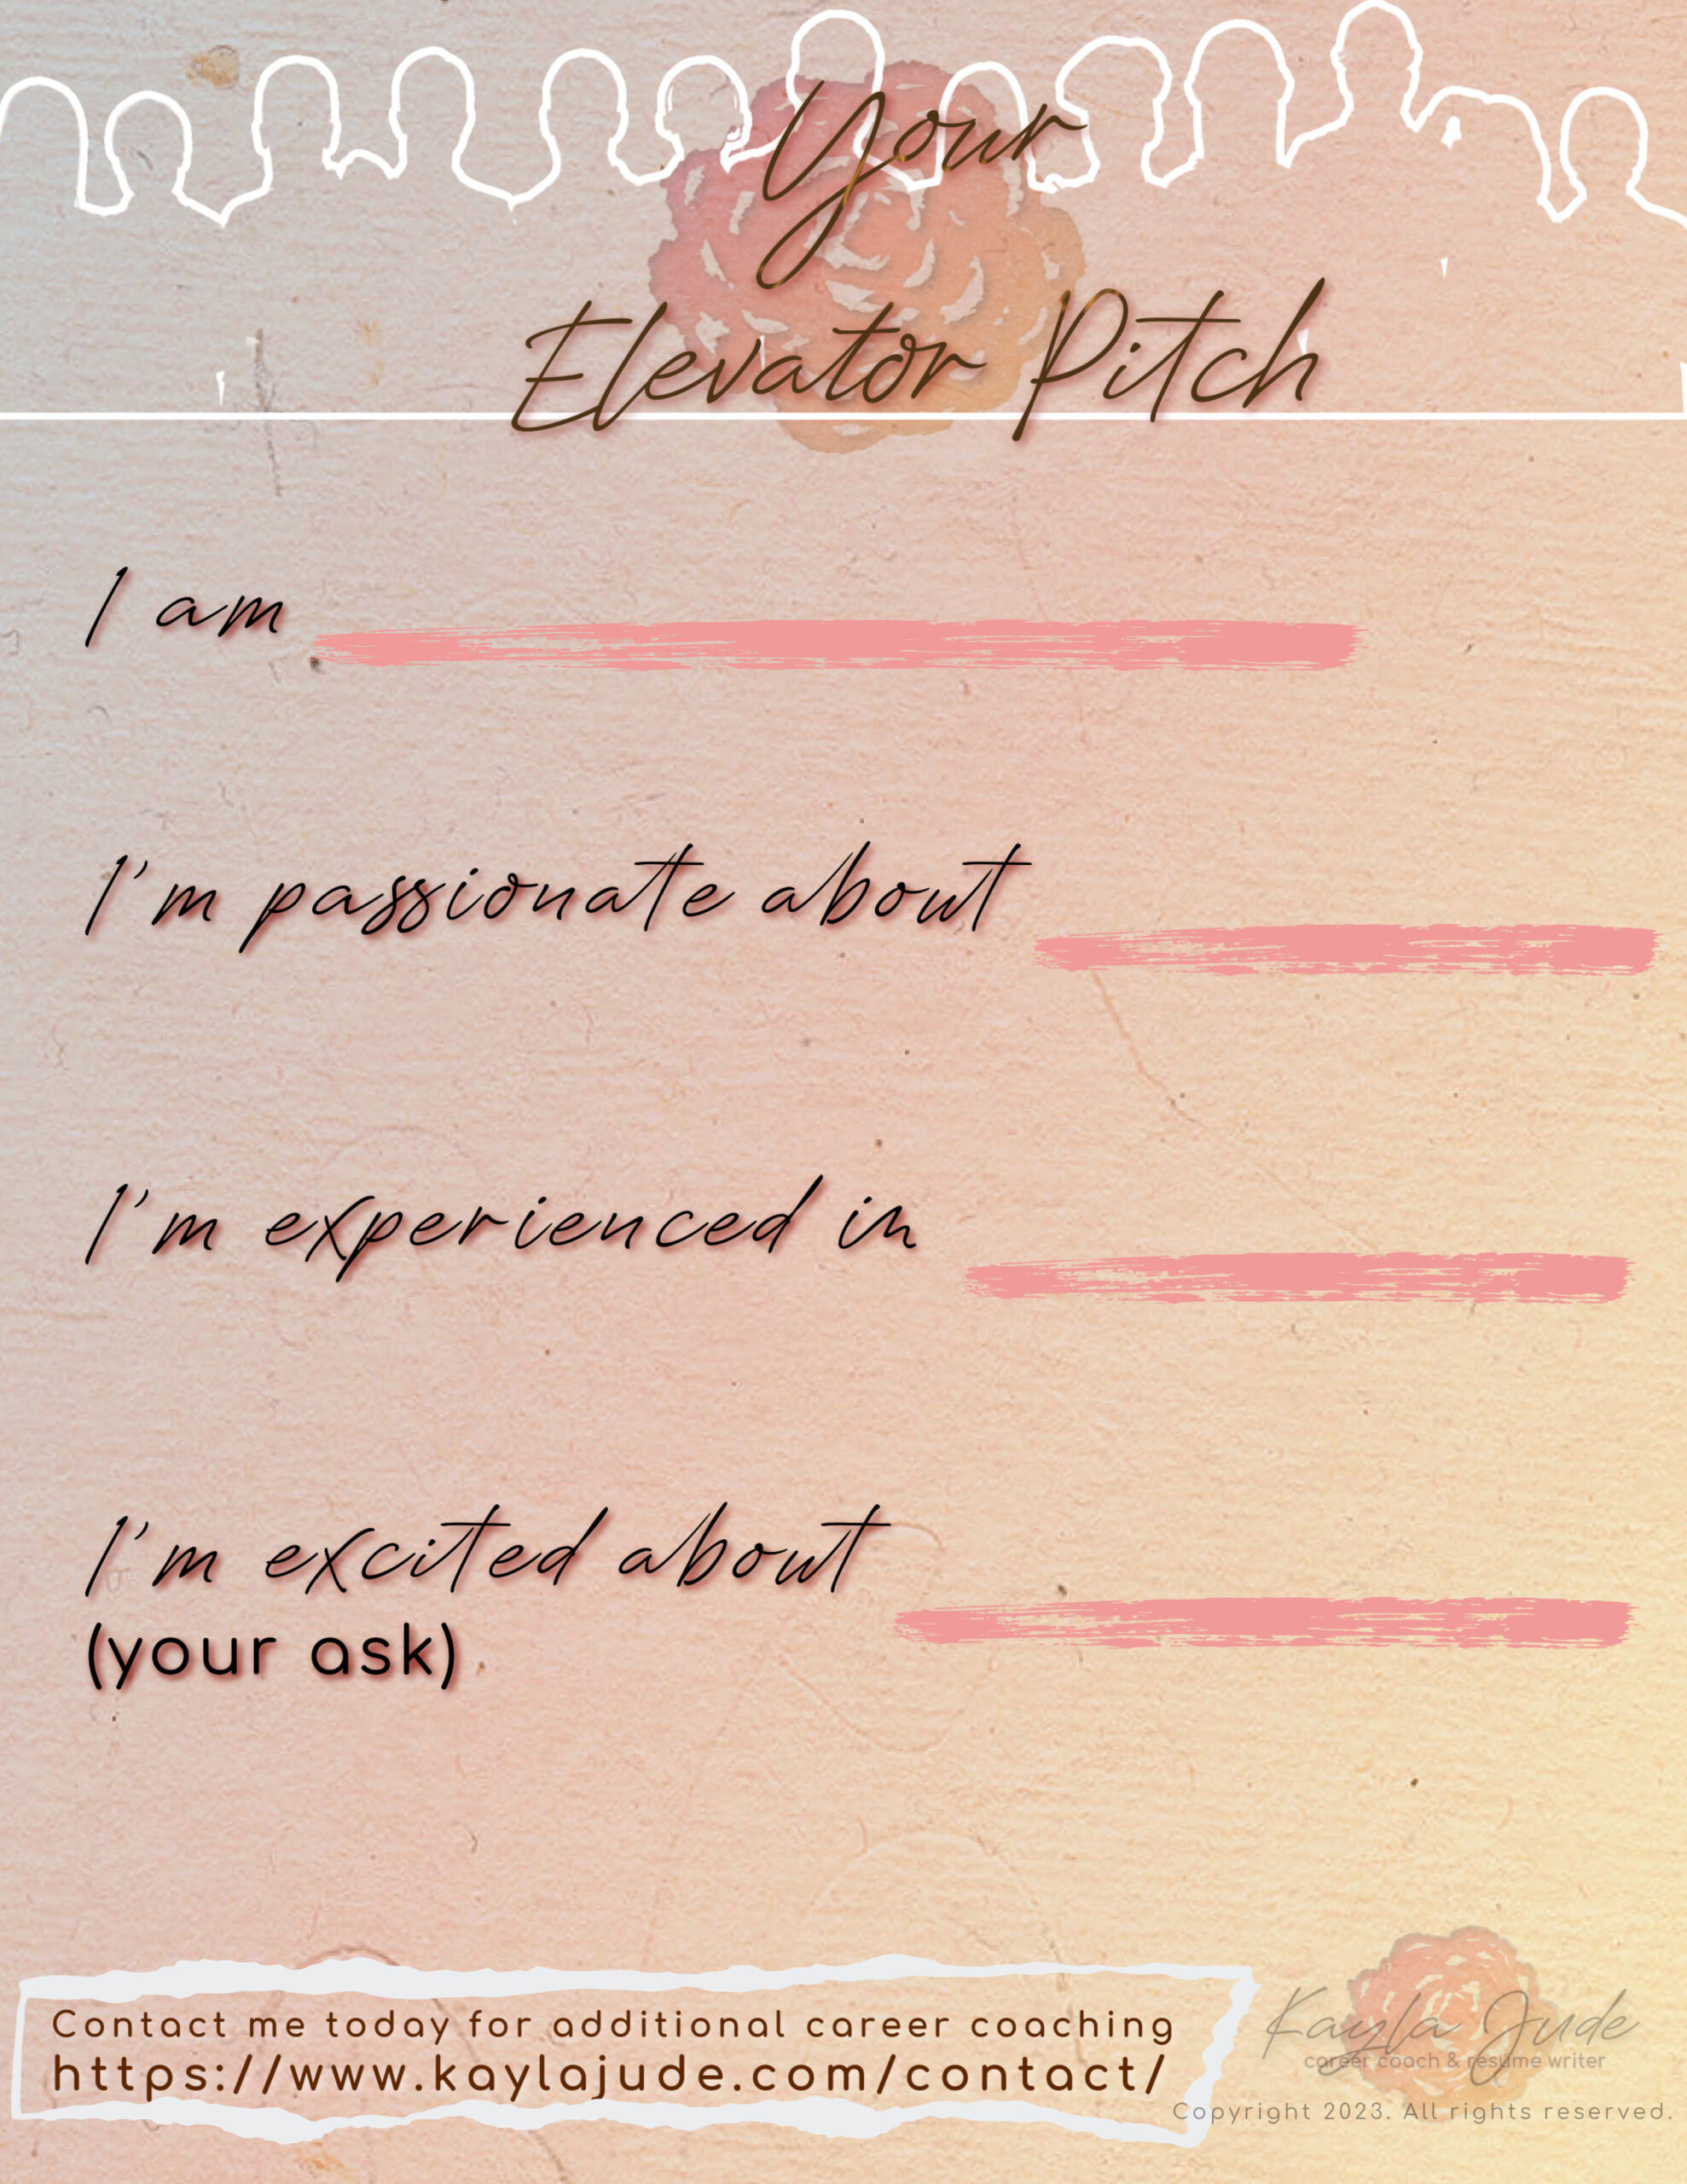 Your
Elevator Pitch
I am
I'm passionate about
I'm experienced in
I'm excited about
(your ask)
Contact me today for additional career coaching
https://www.kaylajude.com/contact/
Kayla Jude
career coach & resume writer
Copyright 2023. All rights reserved.